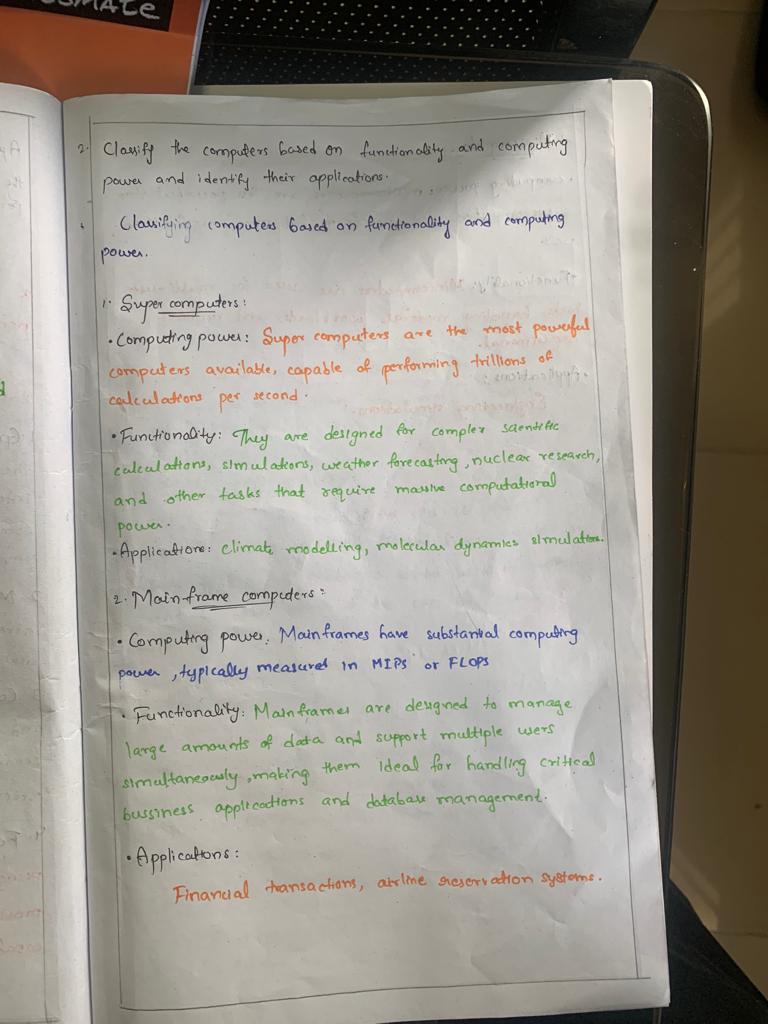 SMATE
2. Classify the computers based on functionality and computing
power and identify their applications.
Classifying computers based on functionality and computing
power.
1. Super computers:
• Computing power: Super computers are the most powerful
computers available, capable of performing trillions of
calculations per second.
• Functionality: They are designed for complex scientific
calculations, simulations, weather forecasting, nuclear research,
and other tasks that require massive computational
power.
• Applications: climate modelling, molecular dynamics simulations.
2. Mainframe computers:
• Computing power: Mainframes have substantial computing
power, typically measured in MIPS or FLOPS
• Functionality: Mainframes are designed to manage
large amounts of data and support multiple users
simultaneously, making them ideal for handling critical
bussiness applications and database management.
• Applications:
Financial transactions, airline reservation systems.